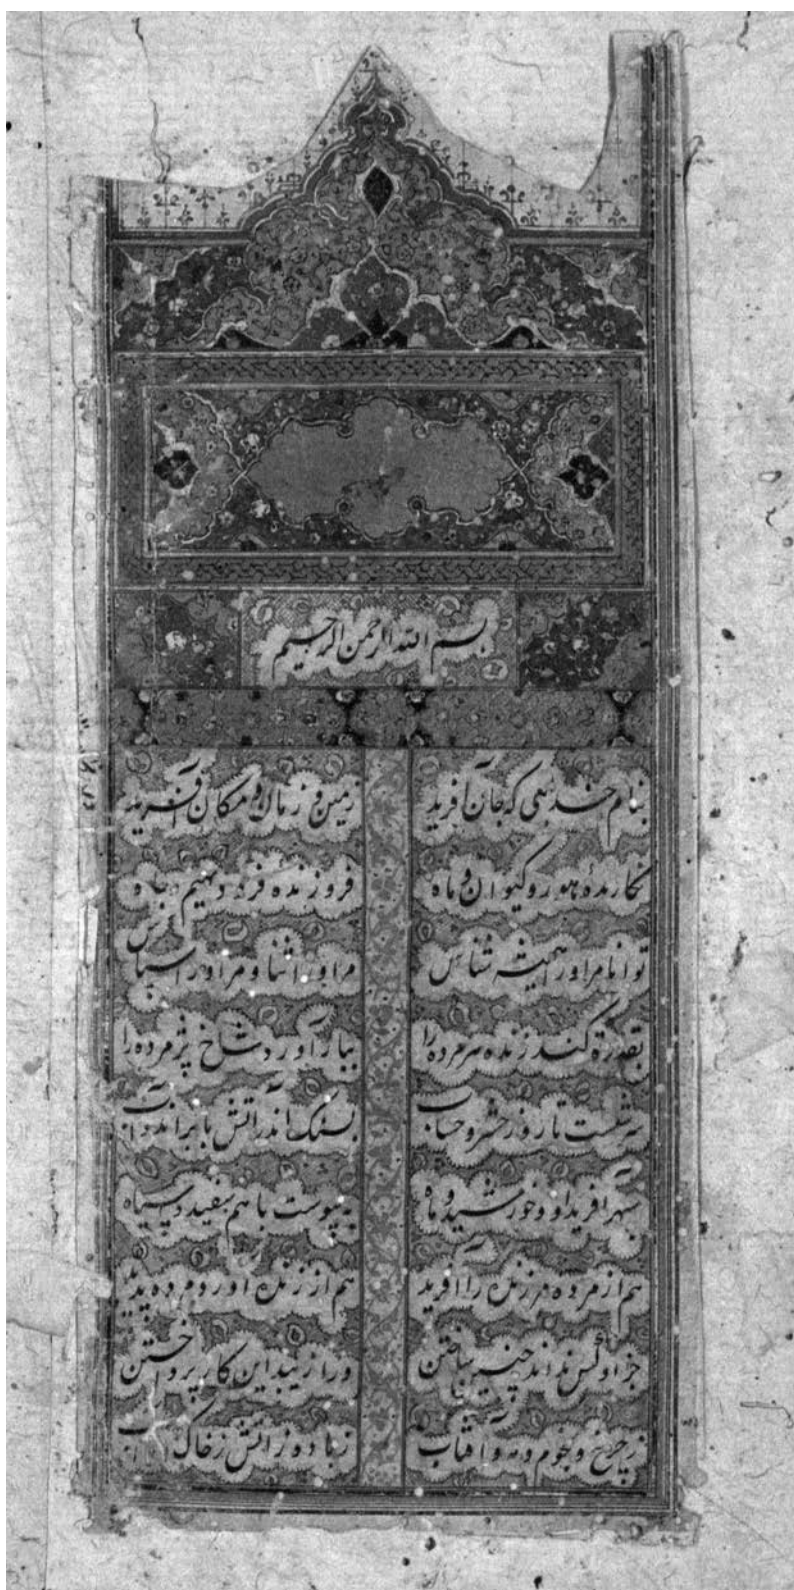 بسم الله الرحمن الرحیم
بنام خدایی که جان آفرید زمین و زمان و مکان آفرید
نگارندهٔ هور و کیوان و ماه فروزنده فره دیهیم و جاه
توانا مر او را همیشه شناس مر او را ثنا و مر او را سپاس
بقدرة کند زنده مر مرده را ببار آورد شاخ پژمرده را
سرشست تا روز حشر و حساب بسنک اندر آتش بابر اندر آب
سپهر آفرید او و خورشید و ماه به پیوست با هم سفید و سیاه
هم از مرده مر زنده را آفرید هم از زنده آورد مرده پدید
جز او کس نداند چنین ساختن ورا زیبد این کار پرداختن
ز چرخ و نجوم و مه و آفتاب ز باده ز آتش ز خاک